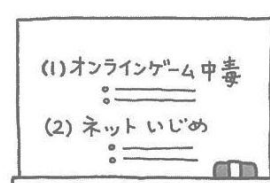 (1)オンラインゲーム中毒
(2)ネットいじめ